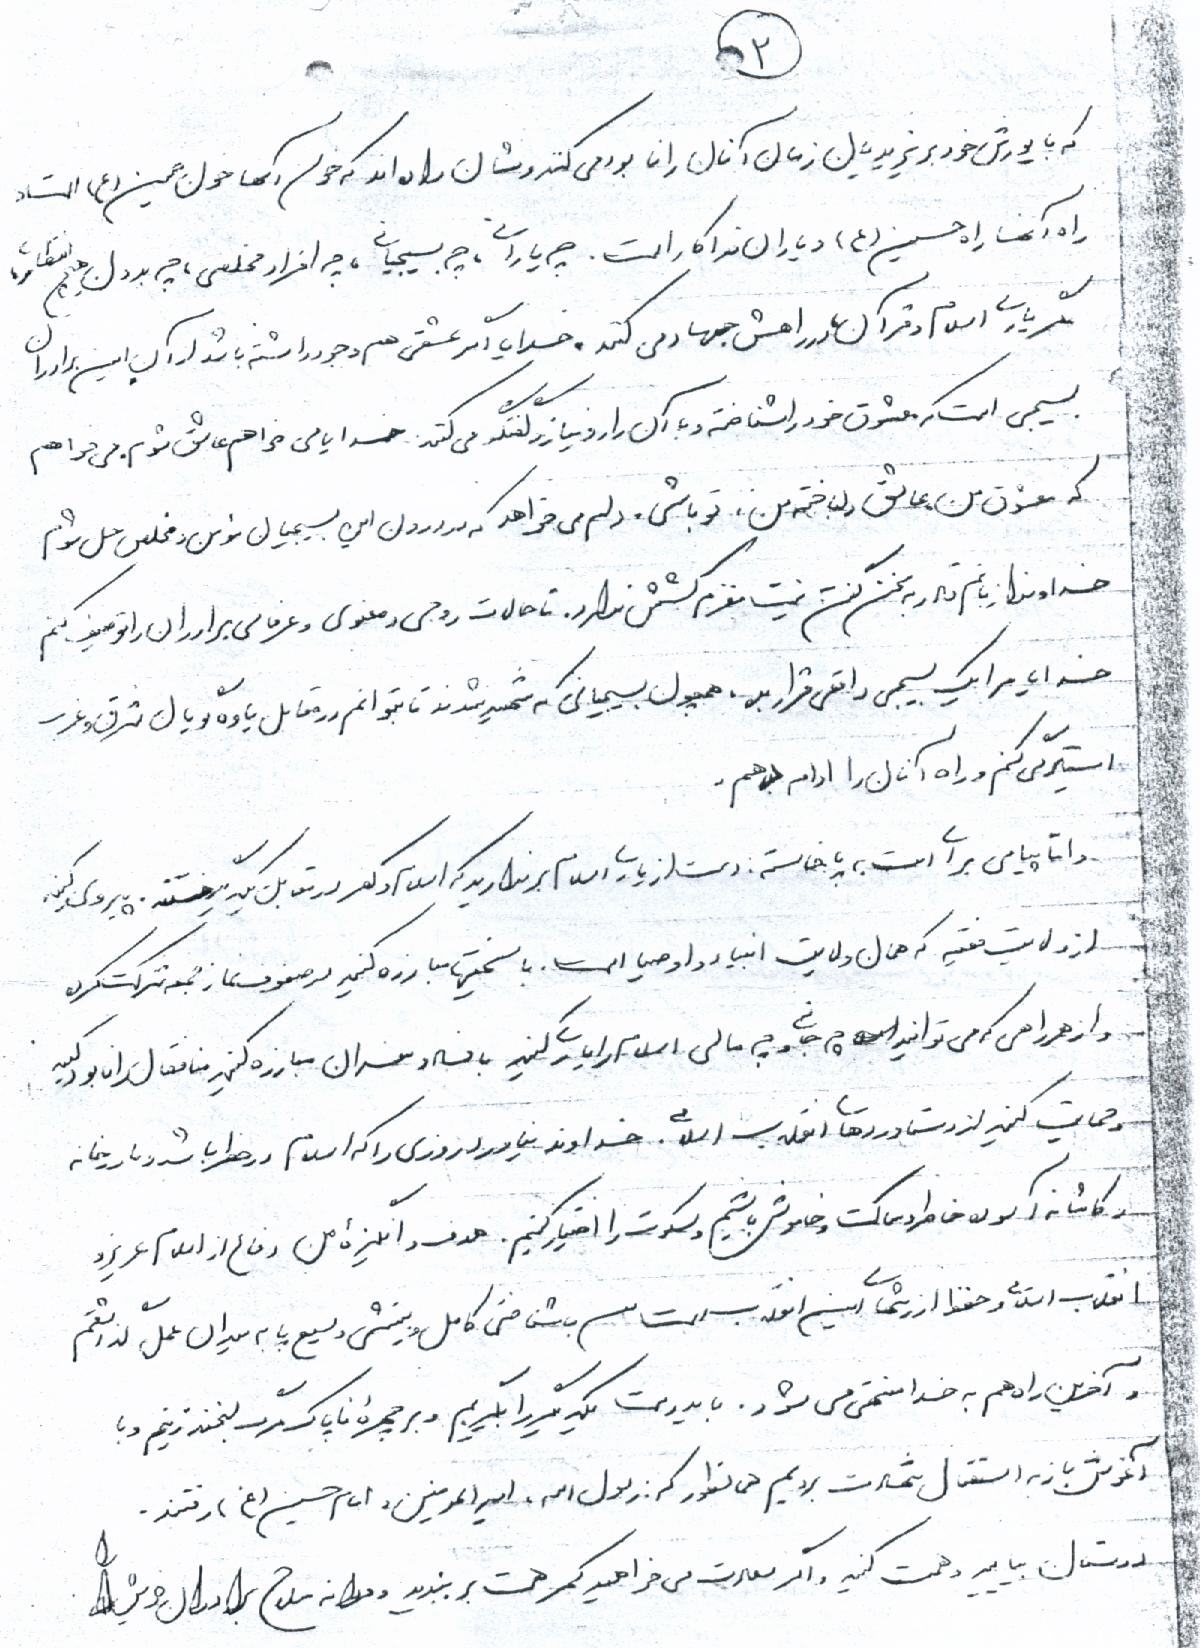 ۲
که با یورش خود بر یزیدیان زمان آنان را نابود می کنند و نشان داده اند که خون آنها خون حسین (ع) است و
راه آنها راه حسین (ع) و یاران فداکار است. چه یارانی، چه بسیجیانی، چه افراد مخلصی، چه بدون هیچ انتظاری
به یاری اسلام و قرآن در راهش جهاد می کنند. خدایا اگر عشقی هم وجود داشته باشد از آن این برادران
بسیجی است که معشوق خود را شناخته و با آن راز و نیاز و گفتگو می کنند. خدایا می خواهم عاشق شوم، می خواهم
که معشوق من، عاشق دلباخته من، تو باشی. دلم می خواهد که در درون این بسیجیان مؤمن و مخلص حل شوم
خداوندا زبانم قادر به سخن گفتن نیست مغزم کشش ندارد. تا حالات روحی و معنوی و عرفانی برادران را توصیف کنم
خدایا مرا یک بسیجی واقعی قرار بده، همچون بسیجیانی که شهید شدند تا بتوانم در مقابل یاوه گویان شرق و غرب
ایستادگی کنم و راه آنان را ادامه دهم.
و اما پیامی برای امت به پا خاسته: دست از یاری اسلام بر ندارید که اسلام و کفر در مقابل یکدیگر هستند. پیروی کنید
از ولایت فقیه که همان ولایت انبیاء و اوصیا است. با سختیها مبارزه کنید در صفوف نماز جمعه شرکت کرده
و از هر راهی که می توانید چه جانی و چه مالی اسلام را یاری کنید با فساد و مفسدان مبارزه کنید منافقان را نابود کنید
و حمایت کنید از دستاوردهای انقلاب اسلامی. خداوند نیاورد روزی را که اسلام در خطر باشد و ما در خانه
و کاشانه آسوده خاطر و ساکت و خاموش باشیم و سکوت را اختیار کنیم. هدف و انگیزه من دفاع از اسلام عزیز و
انقلاب اسلامی و حفظ ارزشهای این انقلاب است پس با شناختی کامل و بینشی وسیع پا به میدان عمل گذاشتم
و آخرین راه هم به خدا منتهی می شود. باید دست یکدیگر را بگیریم و بر چهره ناپاک مرگ لبخند زنیم و با
آغوش باز به استقبال شهادت برویم همانطور که رسول الله، امیر المومنین و امام حسین (ع) رفتند.
دوستان بیایید و همت کنید و اگر سعادت می خواهید کمر همت بر بندید و مردانه سلاح برادران خویش